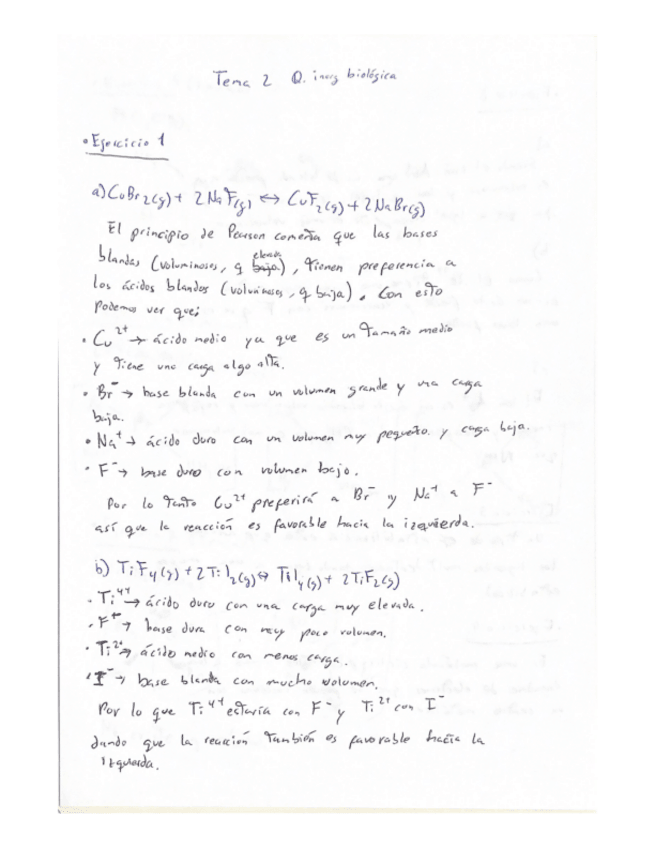 Tema 2 Q. inorg biológica
• Ejercicio 1
a) CuBr2(g) + 2 NaF(g) ↔ CuF2(g) + 2 NaBr(g)
El principio de Pearson comenta que las bases
blandas (voluminosas, q elevada), tienen preferencia a
los ácidos blandos (voluminosos, q baja). Con esto
podemos ver que:
• Cu2+ → ácido medio ya que es un tamaño medio
y tiene una carga algo alta.
• Br- → base blanda con un volumen grande y una carga
baja.
• Na+ → ácido duro con un volumen muy pequeño. y carga baja.
• F- → base duro con volumen bajo.
Por lo tanto Cu2+ preferirá a Br- y Na+ a F-
así que la reacción es favorable hacia la izquierda.
b) TiF4(g) + 2TiI2(g) ↔ TiI4(g) + 2TiF2(g)
• Ti4+ → ácido duro con una carga muy elevada.
• F- → base dura con muy poco volumen.
• Ti2+ → ácido medio con menos carga.
• I- → base blanda con mucho volumen.
Por lo que Ti4+ estaría con F- y Ti2+ con I-
dando que la reacción también es favorable hacia la
izquierda.